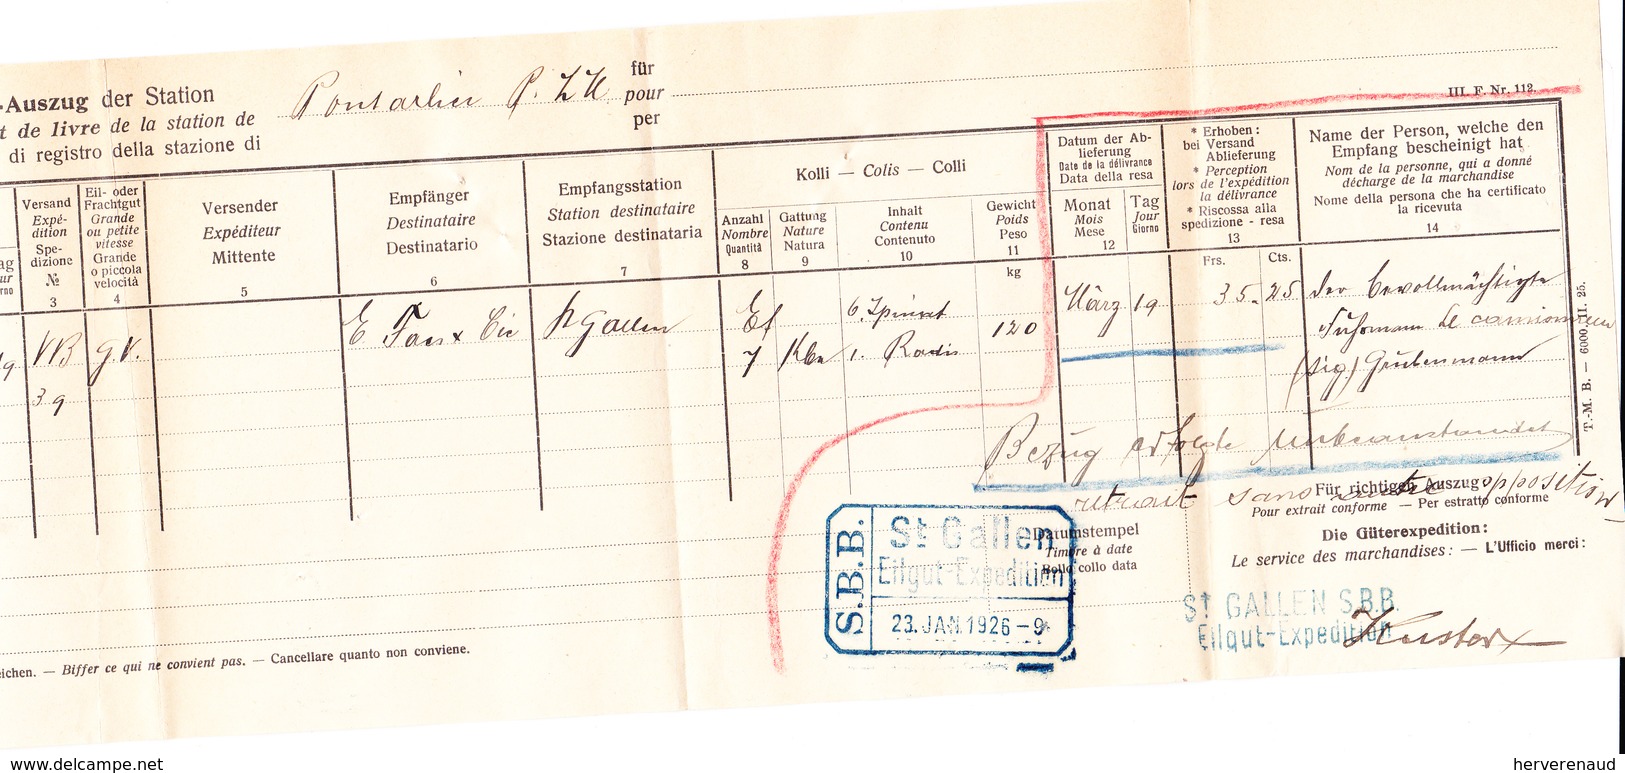 für
-Auszug der Station Pontarlier P. pour
t de livre de la station de
di registro della stazione di per
III. F. Nr. 112.
Versand
Expé-
dition
Spe-
dizione
№
3
Eil- oder
Frachtgut
Grande
ou petite
vitesse
Grande
o piccola
velocità
4
Versender
Expéditeur
Mittente
5
Empfänger
Destinataire
Destinatario
6
Empfangsstation
Station destinataire
Stazione destinataria
7
Kolli — Colis — Colli
Anzahl
Nombre
Quantità
8
Gattung
Nature
Natura
9
Inhalt
Contenu
Contenuto
10
Gewicht
Poids
Peso
11
kg
Datum der Ab-
lieferung
Date de la délivrance
Data della resa
Monat
Mois
Mese
12
Tag
Jour
Giorno
* Erhoben:
bei Versand
Ablieferung
* Perception
lors de l'expédition
la délivrance
* Riscossa alla
spedizione - resa
13
Frs. Cts.
Name der Person, welche den
Empfang bescheinigt hat
Nom de la personne, qui a donné
décharge de la marchandise
Nome della persona che ha certificato
la ricevuta
14
9 VB G.V. E Faes & Cie St Gallen 6 120 März 19 35.25 der bevollmächtigte
39 7 1. Radis Fuhrmann le camionneur
(sig) Grubenmann
Bezug erfolgte unbeanstandet
retrait sans opposition
T.-M. B. — 6000. II. 25.
Für richtigen Auszug
Pour extrait conforme — Per estratto conforme
Die Güterexpedition:
Le service des marchandises: — L'Ufficio merci:
Datumstempel
Timbre à date
Bollo collo data
S.B.B.
St Gallen
Eilgut-Expedition
23. JAN. 1926 - 9
St GALLEN S.B.B.
Eilgut-Expedition
Kuster
eichen. — Biffer ce qui ne convient pas. — Cancellare quanto non conviene.
www.delcampe.net
herverenaud